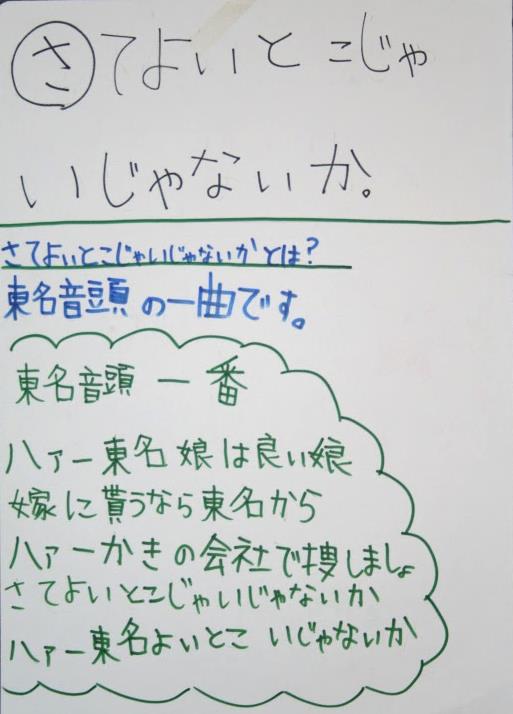 さてよいとこじゃ
いじゃないか。
さてよいとこじゃいじゃないかとは?
東名音頭の一曲です。
東名音頭 一番
ハァー東名娘は良い娘
嫁に貰うなら東名から
ハァーかきの会社で捜しましょ
さてよいとこじゃいじゃないか
ハァー東名よいとこ いじゃないか